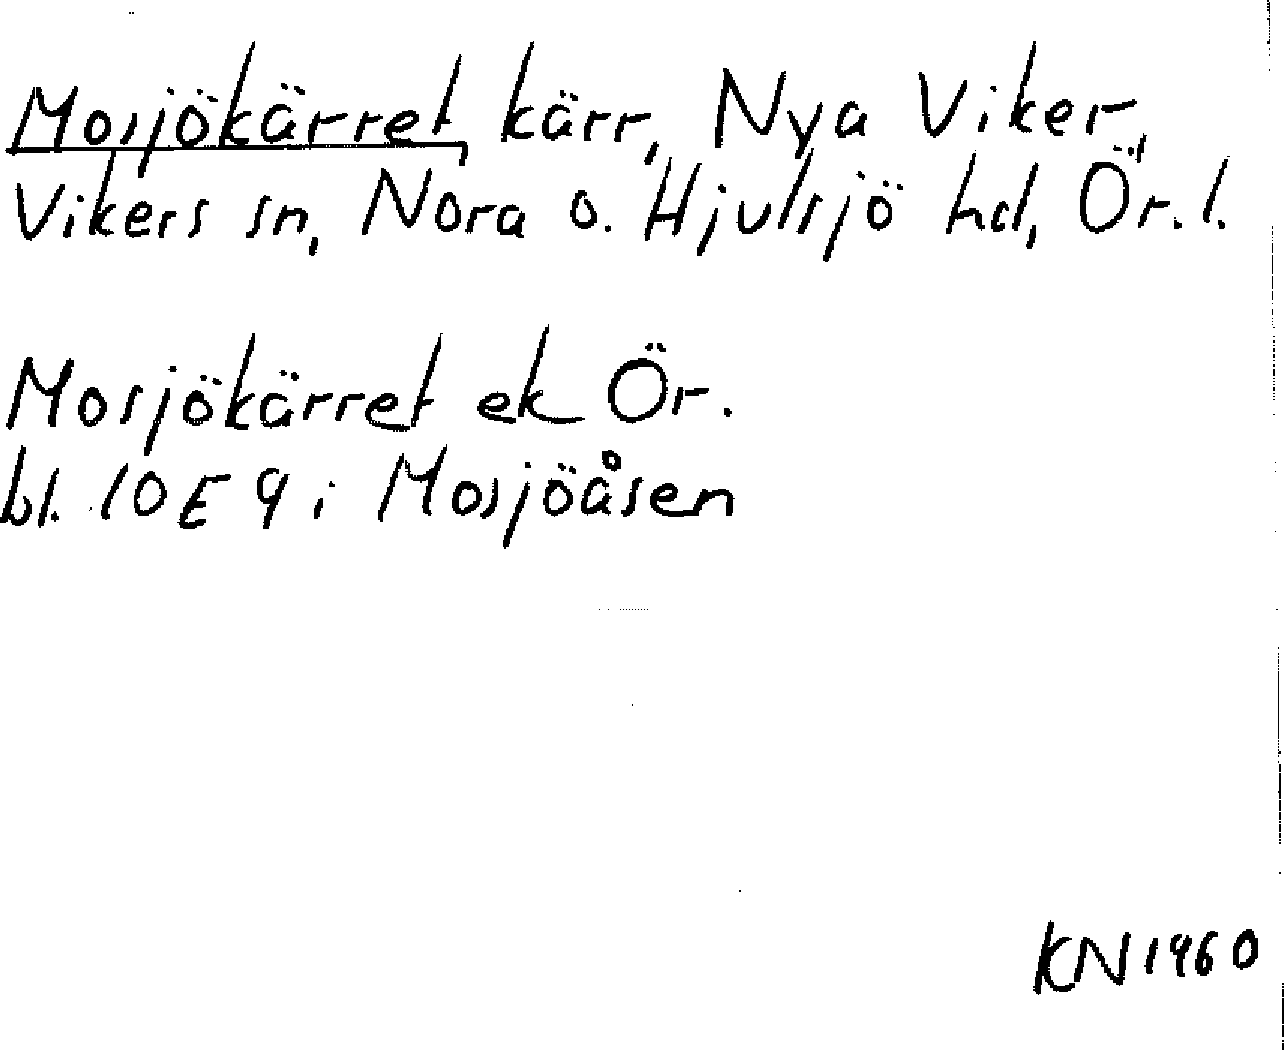 Mosjökärret, kärr, Nya Viker,
Vikers sn, Nora o. Hjulsjö hd, Ör. l.
Mosjökärret ek Ör.
bl. 10E 9 i Mosjöåsen
KN 1960